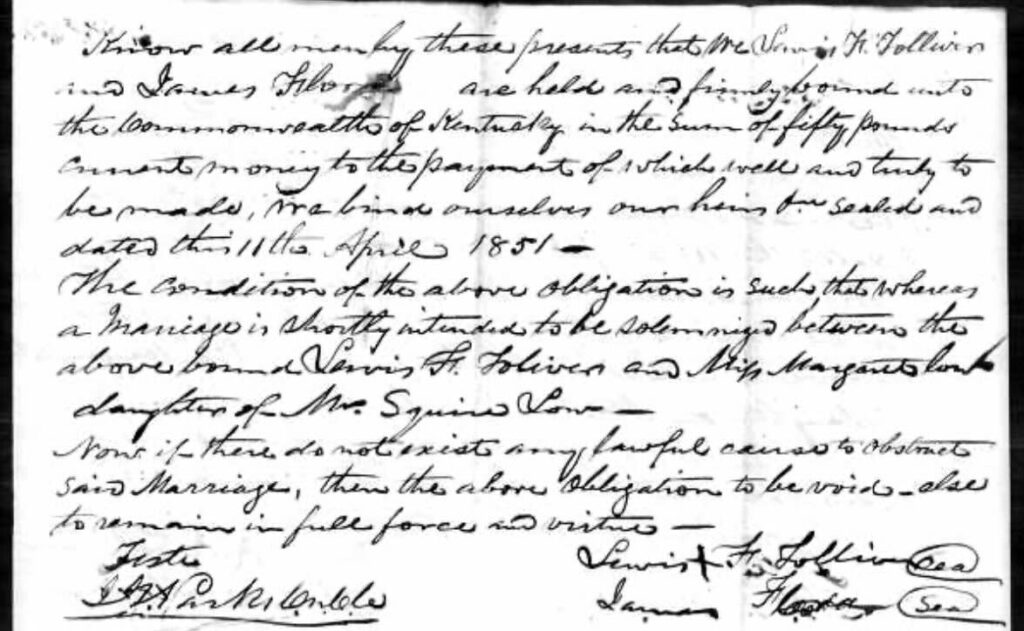 Know all men by these presents that We Lewis F. Tolliver
and James are held and firmly bound unto
the Commonwealth of Kentucky in the Sum of fifty pounds
current money to the payment of which well and truly to
be made, we bind ourselves our heirs &c sealed and
dated this 11th April 1851 —
The Condition of the above obligation is such that whereas
a Marriage is Shortly intended to be Solemnized between the
above bound Lewis F. Toliver and Miss Margaret
daughter of Mr. Squire Low —
Now if there do not exist any lawful cause to obstruct
said Marriage, then the above Obligation to be void - else
to remain in full force and virtue —
Teste
Lewis X F. Tolliver Sea
Parks
James Sea